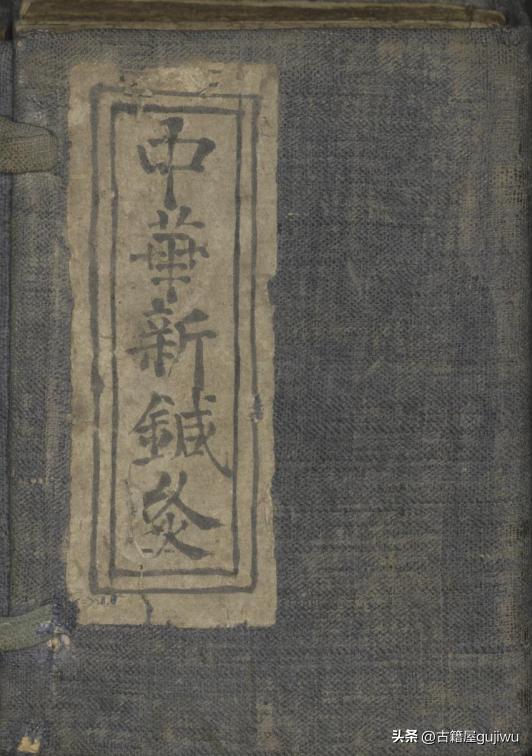 中華新鍼灸
头条 @古籍屋gujiwu